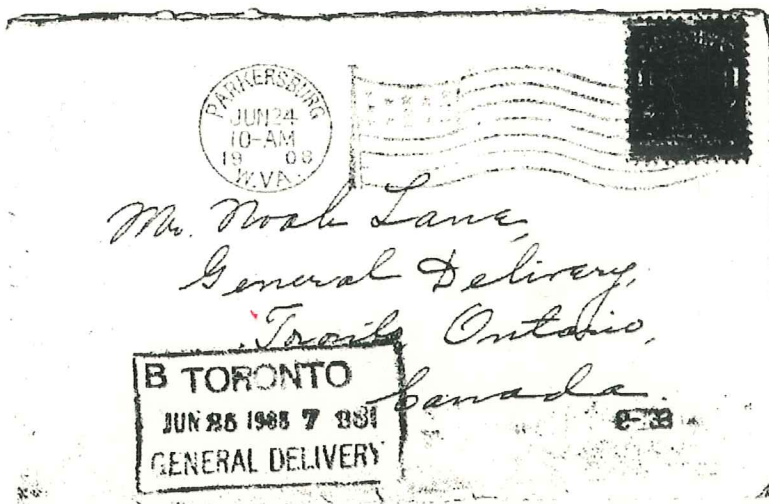 PARKERSBURG
JUN 24
10-AM
19 08
W.VA.
Mr. Noah Lane,
General Delivery,
Ontario,
Canada.
B TORONTO
JUN 26 7
GENERAL DELIVERY